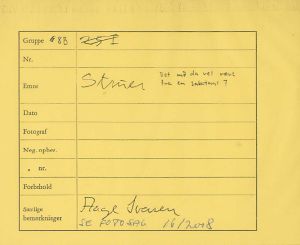 Gruppe #8B 251
Nr.
Emne Struer Det må da vel være
fra en sabotage ?
Dato
Fotograf
Neg. opbev.
" nr.
Forbehold
Særlige
bemærkninger Aage
SE FOTOSAG 16/2008